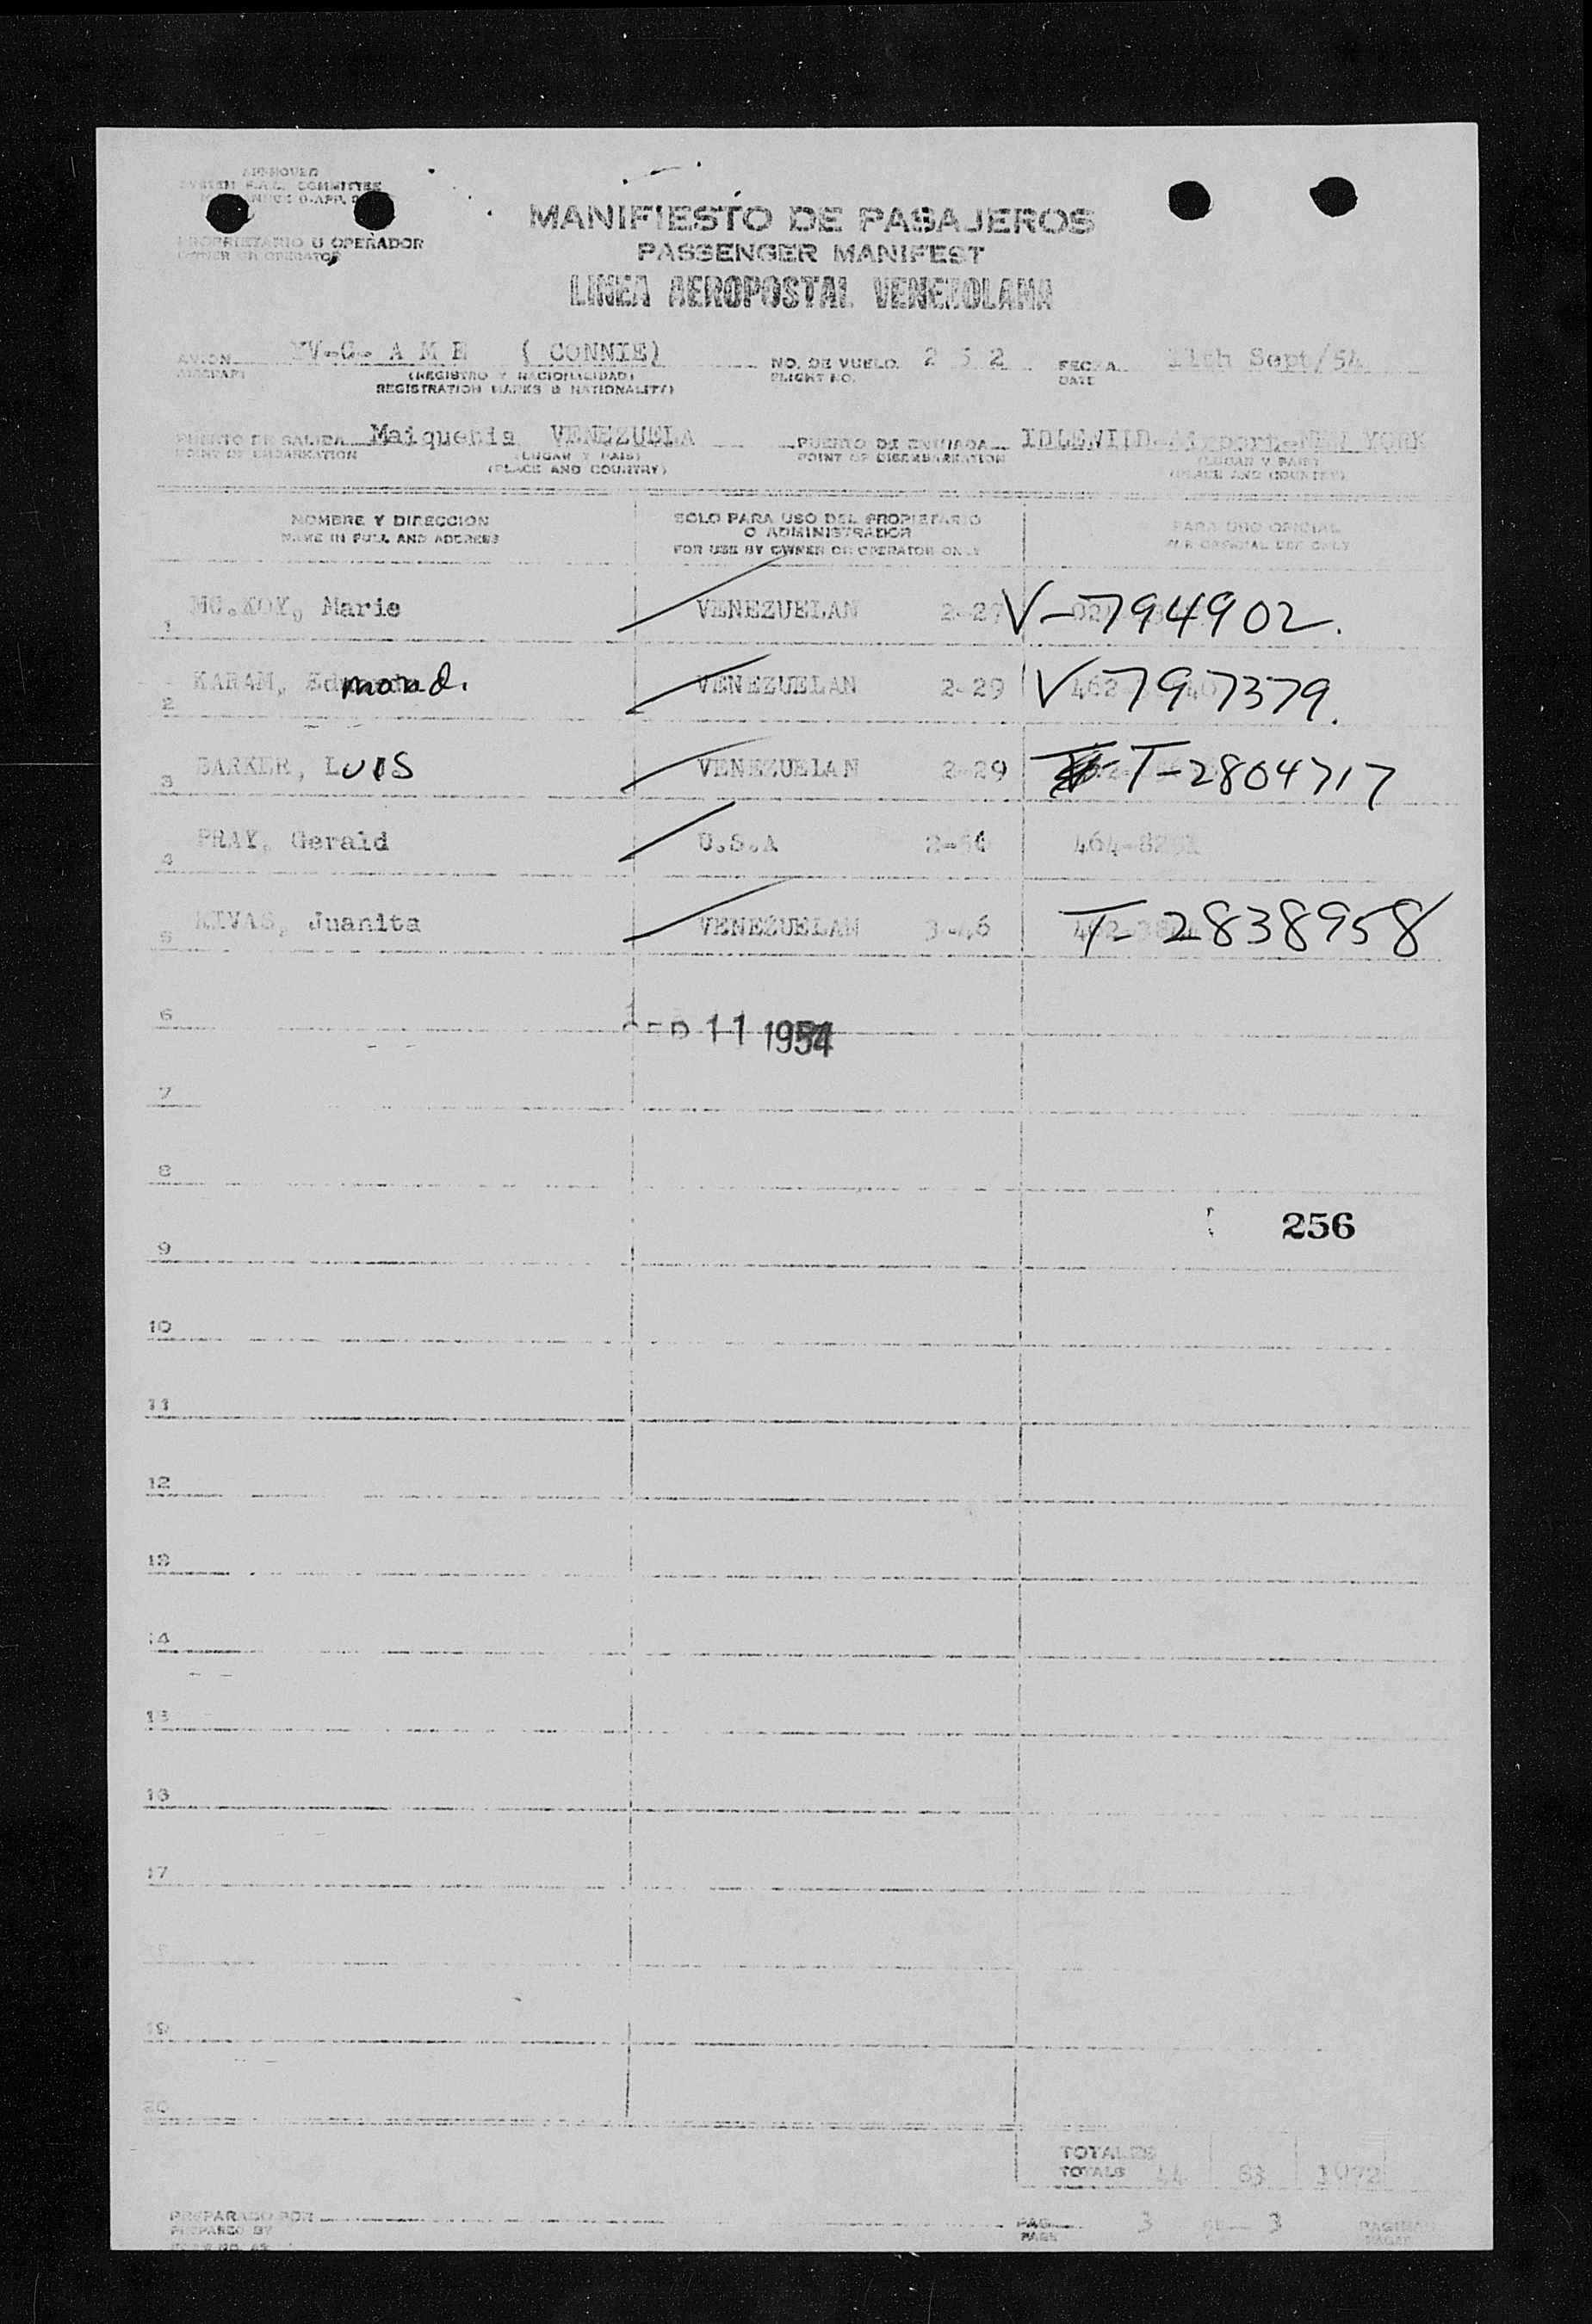 APPROVED
SYSTEM F.A.L. COMMITTEE
PROPRIETARIO U OPERADOR
OWNER OR OPERATOR
MANIFIESTO DE PASAJEROS
PASSENGER MANIFEST
LINEA AEROPOSTAL VENEZOLANA
AVION YV-C- A M E ( CONNIE) NO. DE VUELO 2 5 2 FECHA 11th Sept/54
AIRCRAFT (REGISTRO Y NACIONALIDAD) FLIGHT NO. DATE
REGISTRATION MARKS & NATIONALITY)
PUERTO DE SALIDA Maiquenia VENEZUELA PUERTO DE ENTRADA IDLEWILD-Airport-NEW YORK
POINT OF EMBARKATION (LUGAR Y PAIS) POINT OF DISEMBARKATION (LUGAR Y PAIS)
(PLACE AND COUNTRY) (PLACE AND COUNTRY)
NOMBRE Y DIRECCION SOLO PARA USO DEL PROPIETARIO PARA USO OFICIAL
NAME IN FULL AND ADDRESS O ADMINISTRADOR FOR OFFICIAL USE ONLY
FOR USE BY OWNER OR OPERATOR ONLY
1 MC.KOY, Marie VENEZUELAN 2-27 V-794902.
2 KARAM, Edmond. VENEZUELAN 2-29 V-797379.
3 BARKER, LUIS VENEZUELAN 2-29 T-2804717
4 PRAY, Gerald U.S.A
5 RIVAS, Juanita VENEZUELAN 3-46 T-2838958
6
SEP 11 1954
7
8
256
9
10
11
12
13
14
15
16
17
19
20
TOTALES
TOTALS 44 83 1072
PREPARADO POR PAG. 3 DE 3 PAGINAS
PREPARED BY PAGE PAGES